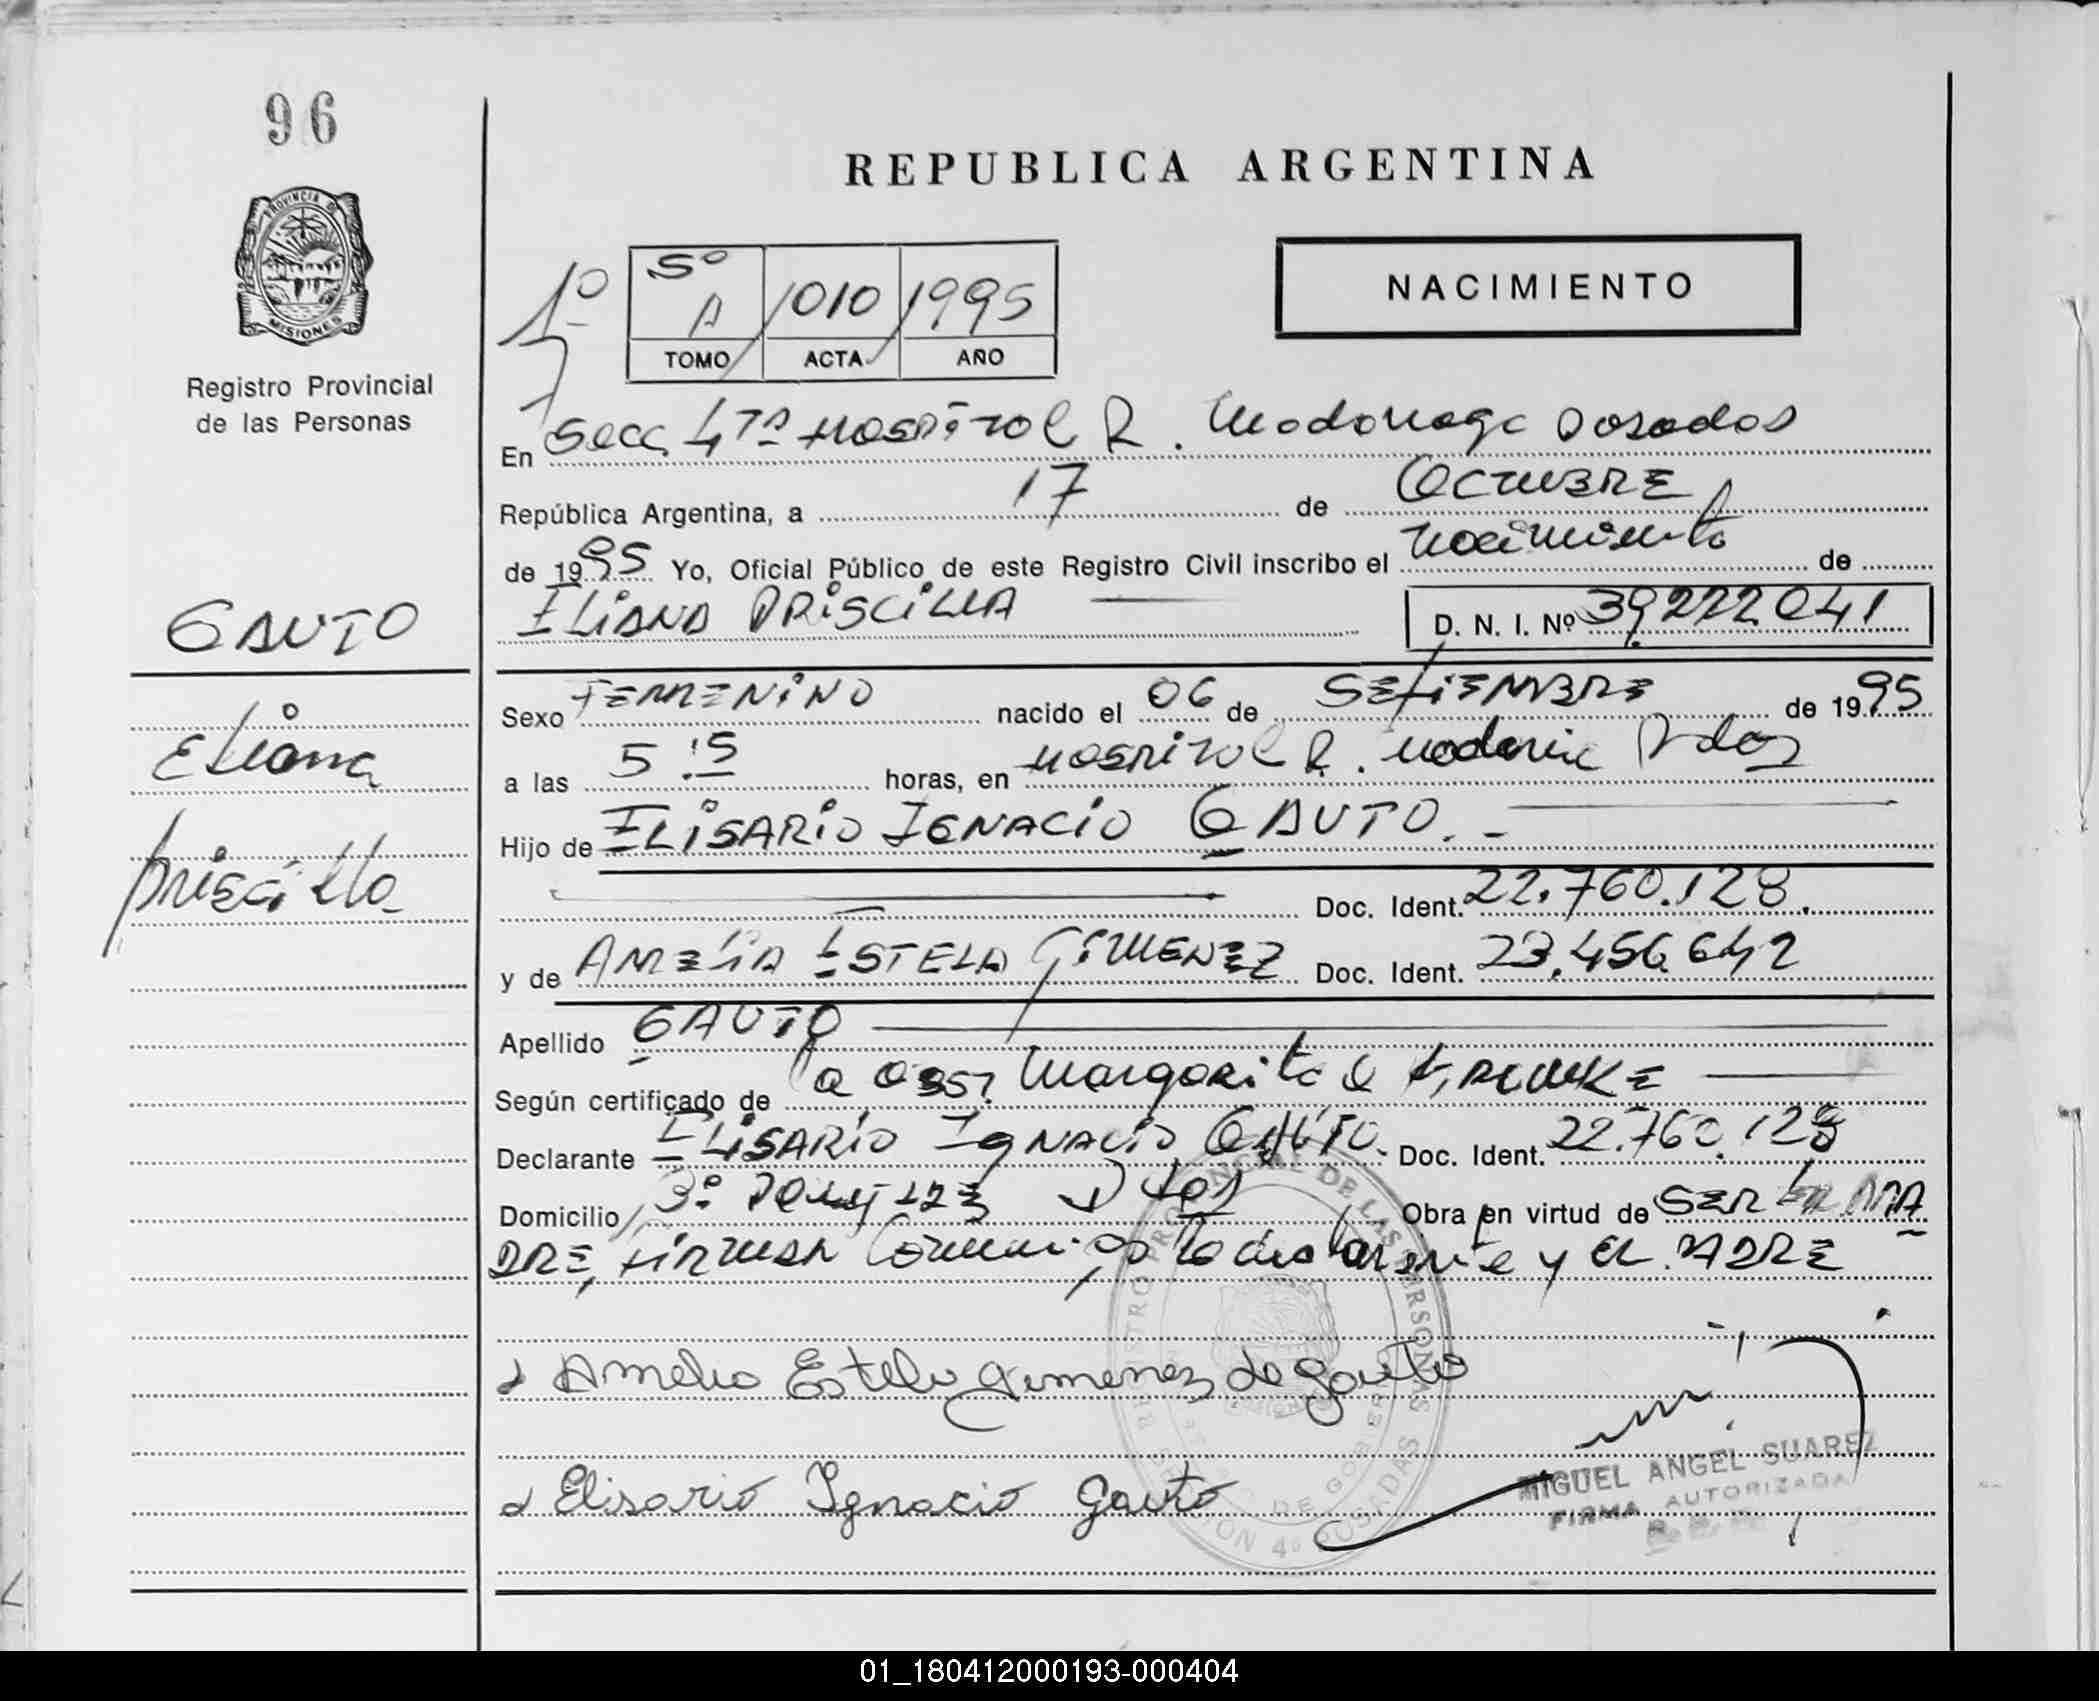 96
REPUBLICA ARGENTINA
PROVINCIA D
MISIONES
Registro Provincial
de las Personas
NACIMIENTO
1º
5º
A 1010 1995
TOMO ACTA AÑO
En Secc. 4ta Hospitol R. Madariaga Posadas
República Argentina, a 17 de OCTUBRE
de 1995 Yo, Oficial Público de este Registro Civil inscribo el nacimiento de
ELIANA PRISCILLA D. N. I. Nº 39.222.041
GAUTO
Eliana
Priscilla
Sexo FEMENINO nacido el 06 de SETIEMBRE de 1995
a las 5.15 horas, en HOSPITOL R. Madaria Pdas
Hijo de ELISARIO IGNACIO GAUTO.-
Doc. Ident. 22.760.128.
y de AMELIA ESTELA GIMENEZ Doc. Ident. 23.456.642
Apellido GAUTO
Según certificado de la OBST. Margarita
Declarante ELISARIO IgNACIO GAUTO. Doc. Ident. 22.760.128
Domicilio Obra en virtud de SER LA MA
DRE, FIRMAN Conmigo la declarante y EL PADRE
Amelia Estela Gimenez de Gauto
Elisario Ignacio Gauto
REGISTRO PROVINCIAL DE LAS PERSONAS
SECCION 4º POSADAS
MIGUEL ANGEL SUAREZ
FIRMA AUTORIZADA
01_180412000193-000404